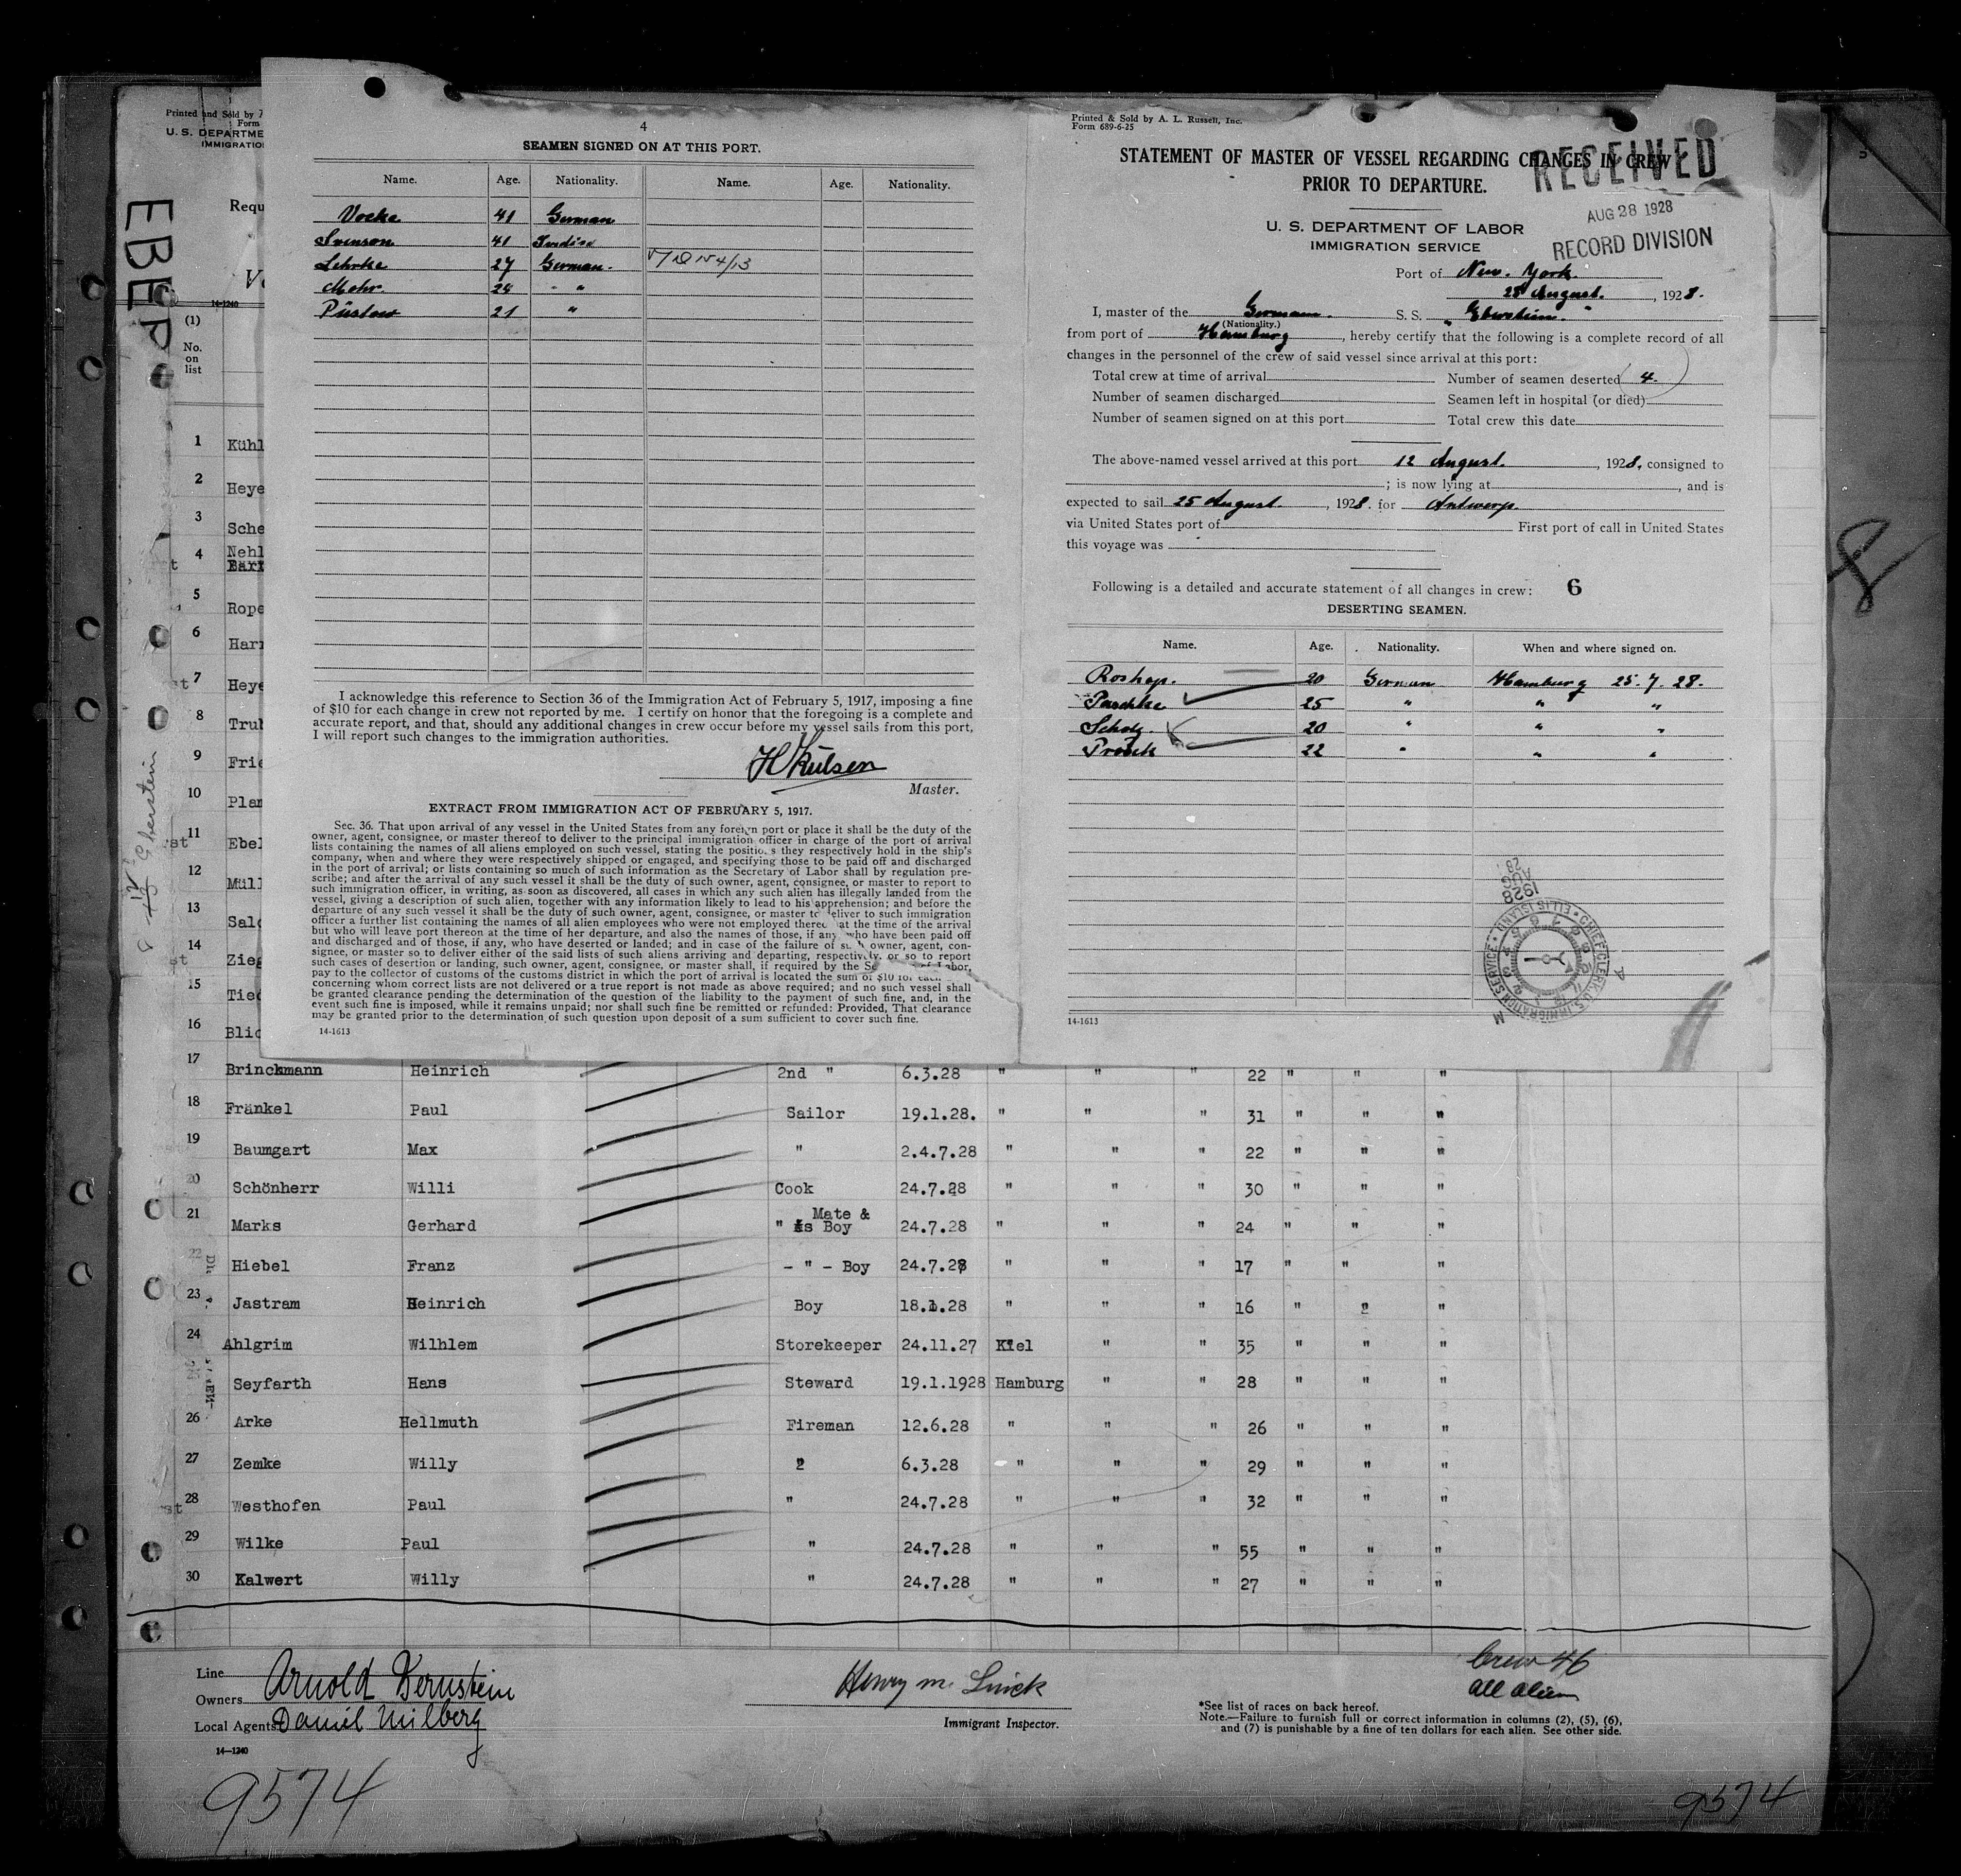 Printed and Sold by
Form
U. S. DEPARTME
IMMIGRATIO
Requ
14-1240
(1)
No.
on
list
EBER
8 Eberstein
4
SEAMEN SIGNED ON AT THIS PORT.
Name. Age. Nationality. Name. Age. Nationality.
Vocke 41 German
Svenson 41
Lehrke 27 German.
Mohr. 24 "
Püstow 21 "
I acknowledge this reference to Section 36 of the Immigration Act of February 5, 1917, imposing a fine
of $10 for each change in crew not reported by me. I certify on honor that the foregoing is a complete and
accurate report, and that, should any additional changes in crew occur before my vessel sails from this port,
I will report such changes to the immigration authorities.
Master.
EXTRACT FROM IMMIGRATION ACT OF FEBRUARY 5, 1917.
Sec. 36. That upon arrival of any vessel in the United States from any foreign port or place it shall be the duty of the
owner, agent, consignee, or master thereof to deliver to the principal immigration officer in charge of the port of arrival
lists containing the names of all aliens employed on such vessel, stating the positions they respectively hold in the ship's
company, when and where they were respectively shipped or engaged, and specifying those to be paid off and discharged
in the port of arrival; or lists containing so much of such information as the Secretary of Labor shall by regulation pre-
scribe; and after the arrival of any such vessel it shall be the duty of such owner, agent, consignee, or master to report to
such immigration officer, in writing, as soon as discovered, all cases in which any such alien has illegally landed from the
vessel, giving a description of such alien, together with any information likely to lead to his apprehension; and before the
departure of any such vessel it shall be the duty of such owner, agent, consignee, or master to deliver to such immigration
officer a further list containing the names of all alien employees who were not employed thereon at the time of the arrival
but who will leave port thereon at the time of her departure, and also the names of those, if any who have been paid off
and discharged and of those, if any, who have deserted or landed; and in case of the failure of such owner, agent, con-
signee, or master so to deliver either of the said lists of such aliens arriving and departing, respectively, or so to report
such cases of desertion or landing, such owner, agent, consignee, or master shall, if required by the Se of Labor,
pay to the collector of customs of the customs district in which the port of arrival is located the sum of $10 for each
concerning whom correct lists are not delivered or a true report is not made as above required; and no such vessel shall
be granted clearance pending the determination of the question of the liability to the payment of such fine, and, in the
event such fine is imposed, while it remains unpaid; nor shall such fine be remitted or refunded: Provided, That clearance
may be granted prior to the determination of such question upon deposit of a sum sufficient to cover such fine.
14-1613
Printed & Sold by A. L. Russell, Inc.
Form 689-6-25
STATEMENT OF MASTER OF VESSEL REGARDING CHANGES IN CREW
PRIOR TO DEPARTURE.
RECEIVED
AUG 28 1928
RECORD DIVISION
U. S. DEPARTMENT OF LABOR
IMMIGRATION SERVICE
Port of New. York.
25 August. , 1928.
I, master of the German. S. S. "Eberstein."
(Nationality.)
from port of Hamburg , hereby certify that the following is a complete record of all
changes in the personnel of the crew of said vessel since arrival at this port:
Total crew at time of arrival Number of seamen deserted 4.
Number of seamen discharged Seamen left in hospital (or died)
Number of seamen signed on at this port Total crew this date
The above-named vessel arrived at this port 12 August. , 1928, consigned to
; is now lying at , and is
expected to sail 25 August. , 1928. for Antwerp.
via United States port of First port of call in United States
this voyage was
Following is a detailed and accurate statement of all changes in crew: 6
DESERTING SEAMEN.
Name. Age. Nationality. When and where signed on.
Roshop. 20 German Hamburg 25.7.28.
Paschke 25 " " "
Scholz. 20 " " "
22 " " "
14-1613
1928
AUG
28
CHIEF CLERK U.S. IMMIGRATION SERVICE • ELLIS ISLAND
8
1 Kühl
2 Heye
3 Sche
4 Nehl
5 Rope
6 Harr
7 Heye
8 Truh
9 Frie
10 Plan
11 Ebel
12 Müll
13 Salo
14 Zieg
15 Tied
16 Blic
17 Brinckmann Heinrich 2nd " 6.3.28 " " " 22 " " "
18 Fränkel Paul Sailor 19.1.28. " " " 31 " " "
19 Baumgart Max " 2.4.7.28 " " " 22 " " "
20 Schönherr Willi Cook 24.7.28 " " " 30 " " "
21 Marks Gerhard " Mate & s Boy 24.7.28 " " " 24 " " "
22 Hiebel Franz - " - Boy 24.7.28 " " " 17 " " "
23 Jastram Heinrich Boy 18.1.28 " " " 16 " " "
24 Ahlgrim Wilhlem Storekeeper 24.11.27 Kiel " " 35 " " "
25 Seyfarth Hans Steward 19.1.1928 Hamburg " " 28 " " "
26 Arke Hellmuth Fireman 12.6.28 " " " 26 " " "
27 Zemke Willy " 6.3.28 " " " 29 " " "
28 Westhofen Paul " 24.7.28 " " " 32 " " "
29 Wilke Paul " 24.7.28 " " " 55 " " "
30 Kalwert Willy " 24.7.28 " " " 27 " " "
Line
Owners Arnold Bernstein
Local Agents Daniel Milberg
14—1240
Henry M.
Immigrant Inspector.
Crew 46
all alien
*See list of races on back hereof.
Note.—Failure to furnish full or correct information in columns (2), (5), (6),
and (7) is punishable by a fine of ten dollars for each alien. See other side.
9574
9574